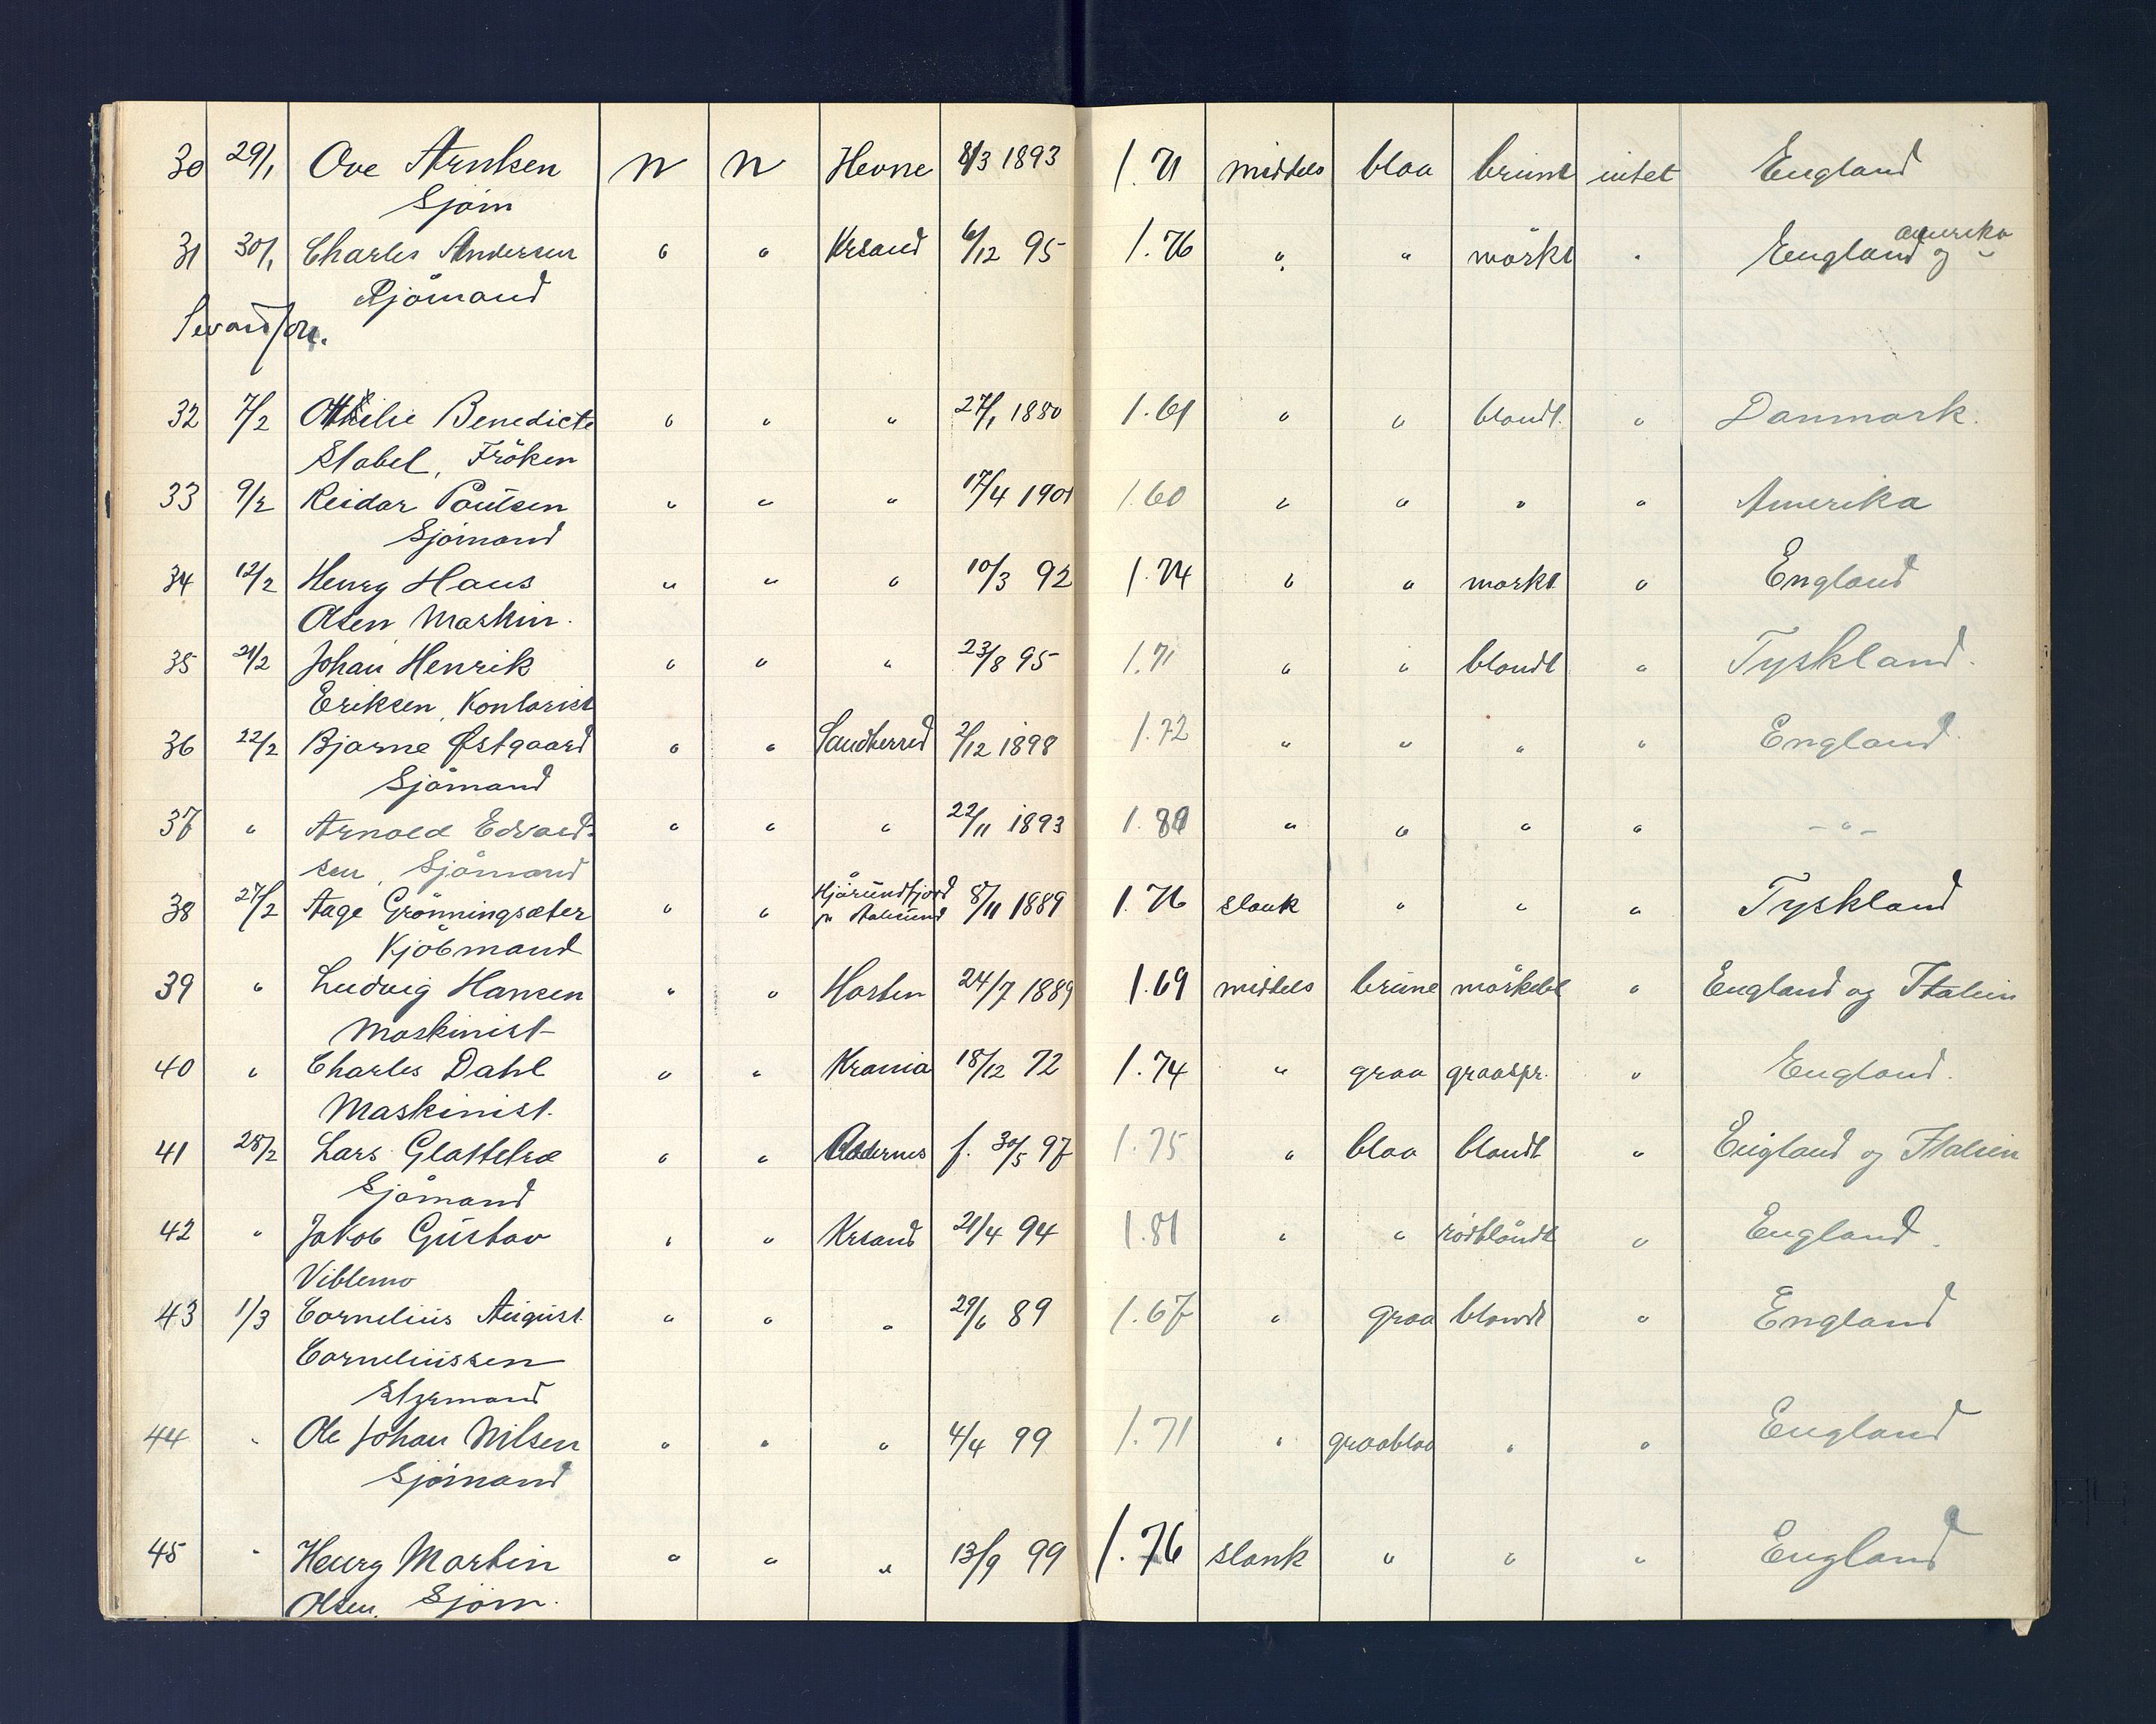 30 29/1 Ove Arntsen N N Hevne 8/3 1893 1.71 middels blaa brunt intet England
Sjöm
31 30/1 Charles Andersen " " Krsand 6/12 95 1.76 " " mörkt " England og amerika
Sjömand
32 7/2 Othilie Benedicte " " " 27/1 1880 1.61 " " blondt. " Danmark.
Stabel, Fröken
33 9/2 Reidar Paulsen " " " 17/4 1901 1.60 " " " " Amerika
Sjömand
34 12/2 Henry Haus " " " 10/3 92 1.74 " " morkt " England
Olsen Maskin.
35 21/2 Johan Henrik " " " 23/8 95 1.71 " " blondt " Tyskland.
Eriksen, Kontorist
36 22/2 Bjarne Østgaard " " Sandherred 2/12 1898 1.72 " " " " England
Sjömand
37 " Arnold Edvard- " " " 22/11 1893 " " " " - " -
sen, Sjömand
38 27/2 Aage Grönningsæter " " Hjörundfjord 8/11 1889 1.76 slank " " " Tyskland
Kjöbmand pr Aalesund
39 " Ludvig Hansen " " Horten 24/7 1889 1.69 middels brune mörkebl " England og Italien
Maskinist
40 " Charles Dahl " " Krania 18/12 72 1.74 " graa graaspr. " England.
Maskinist.
41 28/2 Lars Glattetræ " " f. 30/5 97 1.75 " blaa blondt " England og Italien
Sjömand
42 " Jakob Gustav " " Krsand 21/4 94 1.81 " " rödblondt " England.
Viblemo
43 1/3 Cornelius August " " " 29/6 89 1.67 " graa blondt " England
Corneliussen
Styrmand
44 " Ole Johan Nilsen " " " 4/4 99 1.71 " graablaa " " England
Sjömand
45 " Henry Martin " " " 13/9 99 1.76 slank " " " England
Olsen, Sjöm.